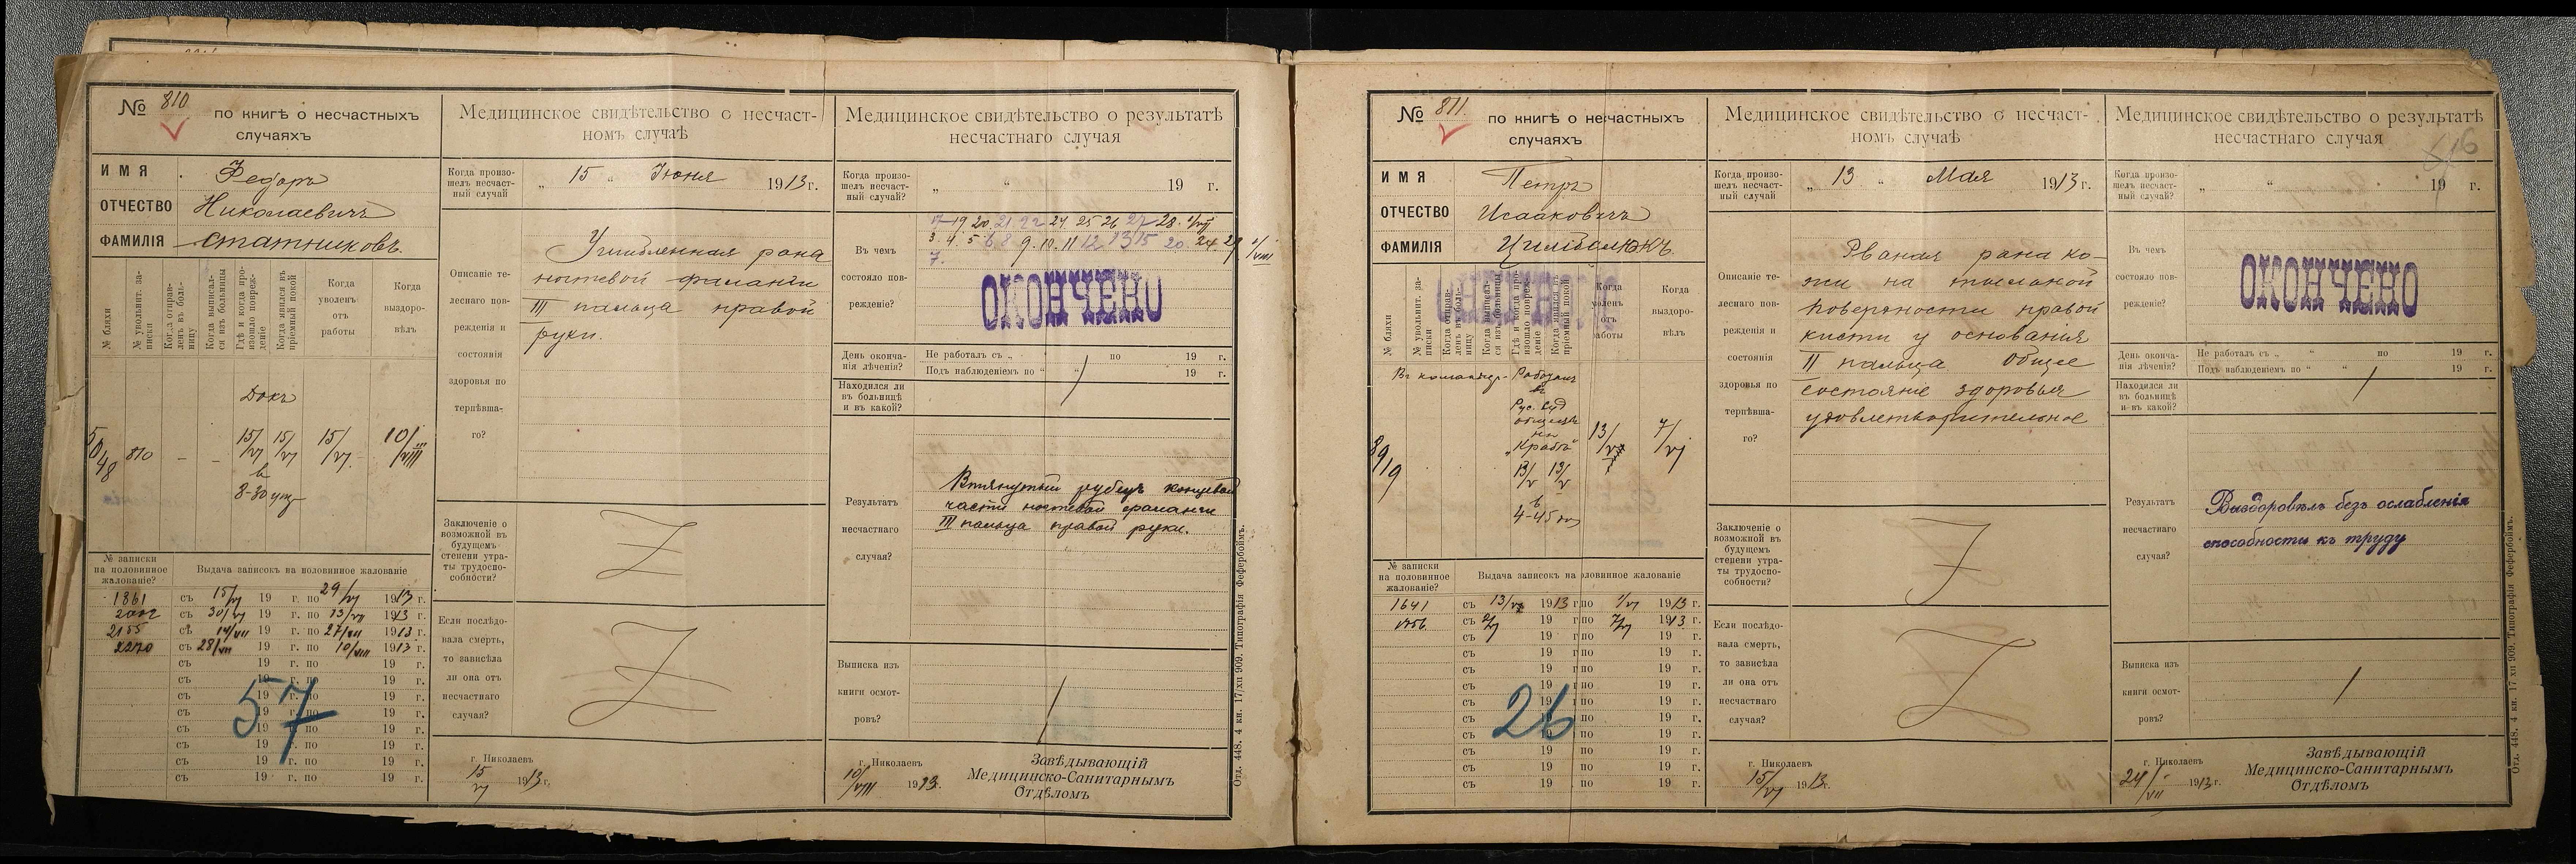 № 810
по книгѣ о несчастныхъ
случаяхъ
ИМЯ Федоръ
ОТЧЕСТВО Николаевичъ
ФАМИЛІЯ Статниковъ
№ бляхи
№ увольнит. за-
писки
Когда отправ-
ленъ въ боль-
ницу
Когда выписал-
ся изъ больницы
Гдѣ и когда про-
изошло повреж-
деніе
Когда явился въ
пріемный покой
Когда
уволенъ
отъ
работы
Когда
выздоро-
вѣлъ
Докъ
5048 810 – – 15/VI 15/VI 15/VI 10/VIII
в
3-30 ут
№ записки
на половинное
жалованіе?
Выдача записокъ на половинное жалованіе
1861 съ 15/VI 19 г. по 29/VI 1913 г.
2002 съ 30/VI 19 г. по 13/VII 1913 г.
2155 съ 14/VII 19 г. по 27/VII 1913 г.
2270 съ 28/VII 19 г. по 10/VIII 1913 г.
съ 19 г. по 19 г.
съ 19 г. по 19 г.
съ 19 г. по 19 г.
съ 19 г. по 19 г.
съ 19 г. по 19 г.
съ 19 г. по 19 г.
съ 19 г. по 19 г.
съ 19 г. по 19 г.
57
Медицинское свидѣтельство о несчаст-
номъ случаѣ
Когда произо-
шелъ несчаст-
ный случай
„ 15 “ Іюня 1913 г.
Описаніе те-
леснаго пов-
режденія и
состоянія
здоровья по
терпѣвша-
го?
Ушибленная рана
ногтевой фаланги
III пальца правой
руки.
Заключеніе о
возможной въ
будущемъ
степени утра-
ты трудоспо-
собности?
Если послѣдо-
вала смерть,
то зависѣла
ли она отъ
несчастнаго
случая?
г. Николаевъ
15/VI 1913 г.
Медицинское свидѣтельство о результатѣ
несчастнаго случая
Когда произо-
шелъ несчаст-
ный случай?
„ “ 19 г.
Въ чемъ
состояло пов-
режденіе?
17 19 20 21 22 24 25 26 27 28 1/VII
3 4 5 6 8 9. 10. 11 12 13 15 20 24 29 1/VIII
7.
ОКОНЧЕНО
День оконча-
нія лѣченія?
Не работалъ съ „ “ по 19 г.
Подъ наблюденіемъ по “ “ 19 г.
Находился ли
въ больницѣ
и въ какой?
Результатъ
несчастнаго
случая?
Втянутый рубецъ концевой
части ногтевой фаланги
III пальца правой руки.
Выписка изъ
книги осмот-
ровъ?
г. Николаевъ
10/VIII 1913 г.
Завѣдывающій
Медицинско-Санитарнымъ
Отдѣломъ
Отд. 448. 4 кн. 17/xii 909. Типографія Фефербоймъ.
№ 811.
по книгѣ о несчастныхъ
случаяхъ
ИМЯ Петръ
ОТЧЕСТВО Исааковичъ
ФАМИЛІЯ Цимбалюкъ
№ бляхи
№ увольнит. за-
писки
Когда отправ-
ленъ въ боль-
ницу
Когда выписал-
ся изъ больницы
Гдѣ и когда про-
изошло повреж-
деніе
Когда явился въ
пріемный покой
Когда
уволенъ
отъ
работы
Когда
выздоро-
вѣлъ
Въ командир-
в
Рус. Суд
на
„Крабъ“
8919 13/V 13/V 13/V 7/VI
в
4-45
№ записки
на половинное
жалованіе?
Выдача записокъ на половинное жалованіе
1641 съ 13/V 1913 г. по 1/VI 1913 г.
1756 съ 2/VI 19 г. по 7/VI 1913 г.
съ 19 г. по 19 г.
съ 19 г. по 19 г.
съ 19 г. по 19 г.
съ 19 г. по 19 г.
съ 19 г. по 19 г.
съ 19 г. по 19 г.
съ 19 г. по 19 г.
съ 19 г. по 19 г.
съ 19 г. по 19 г.
съ 19 г. по 19 г.
26
Медицинское свидѣтельство о несчаст-
номъ случаѣ
Когда произо-
шелъ несчаст-
ный случай
„ 13 “ Мая 1913 г.
Описаніе те-
леснаго пов-
режденія и
состоянія
здоровья по
терпѣвша-
го?
Рваная рана ко-
жи на тыльной
поверхности правой
кисти у основанія
II пальца Общее
состояніе здоровья
удовлетворительное
Заключеніе о
возможной въ
будущемъ
степени утра-
ты трудоспо-
собности?
Если послѣдо-
вала смерть,
то зависѣла
ли она отъ
несчастнаго
случая?
г. Николаевъ
15/VI 1913 г.
Медицинское свидѣтельство о результатѣ
несчастнаго случая
Когда произо-
шелъ несчаст-
ный случай?
„ “ 19 г.
Въ чемъ
состояло пов-
режденіе?
ОКОНЧЕНО
День оконча-
нія лѣченія?
Не работалъ съ „ “ по 19 г.
Подъ наблюденіемъ по “ “ 19 г.
Находился ли
въ больницѣ
и въ какой?
Результатъ
несчастнаго
случая?
Выздоровѣлъ безъ ослабленія
способности къ труду
Выписка изъ
книги осмот-
ровъ?
г. Николаевъ
24/VII 1913 г.
Завѣдывающій
Медицинско-Санитарнымъ
Отдѣломъ
Отд. 448. 4 кн. 17 xii 909. Типографія Фефербоймъ.